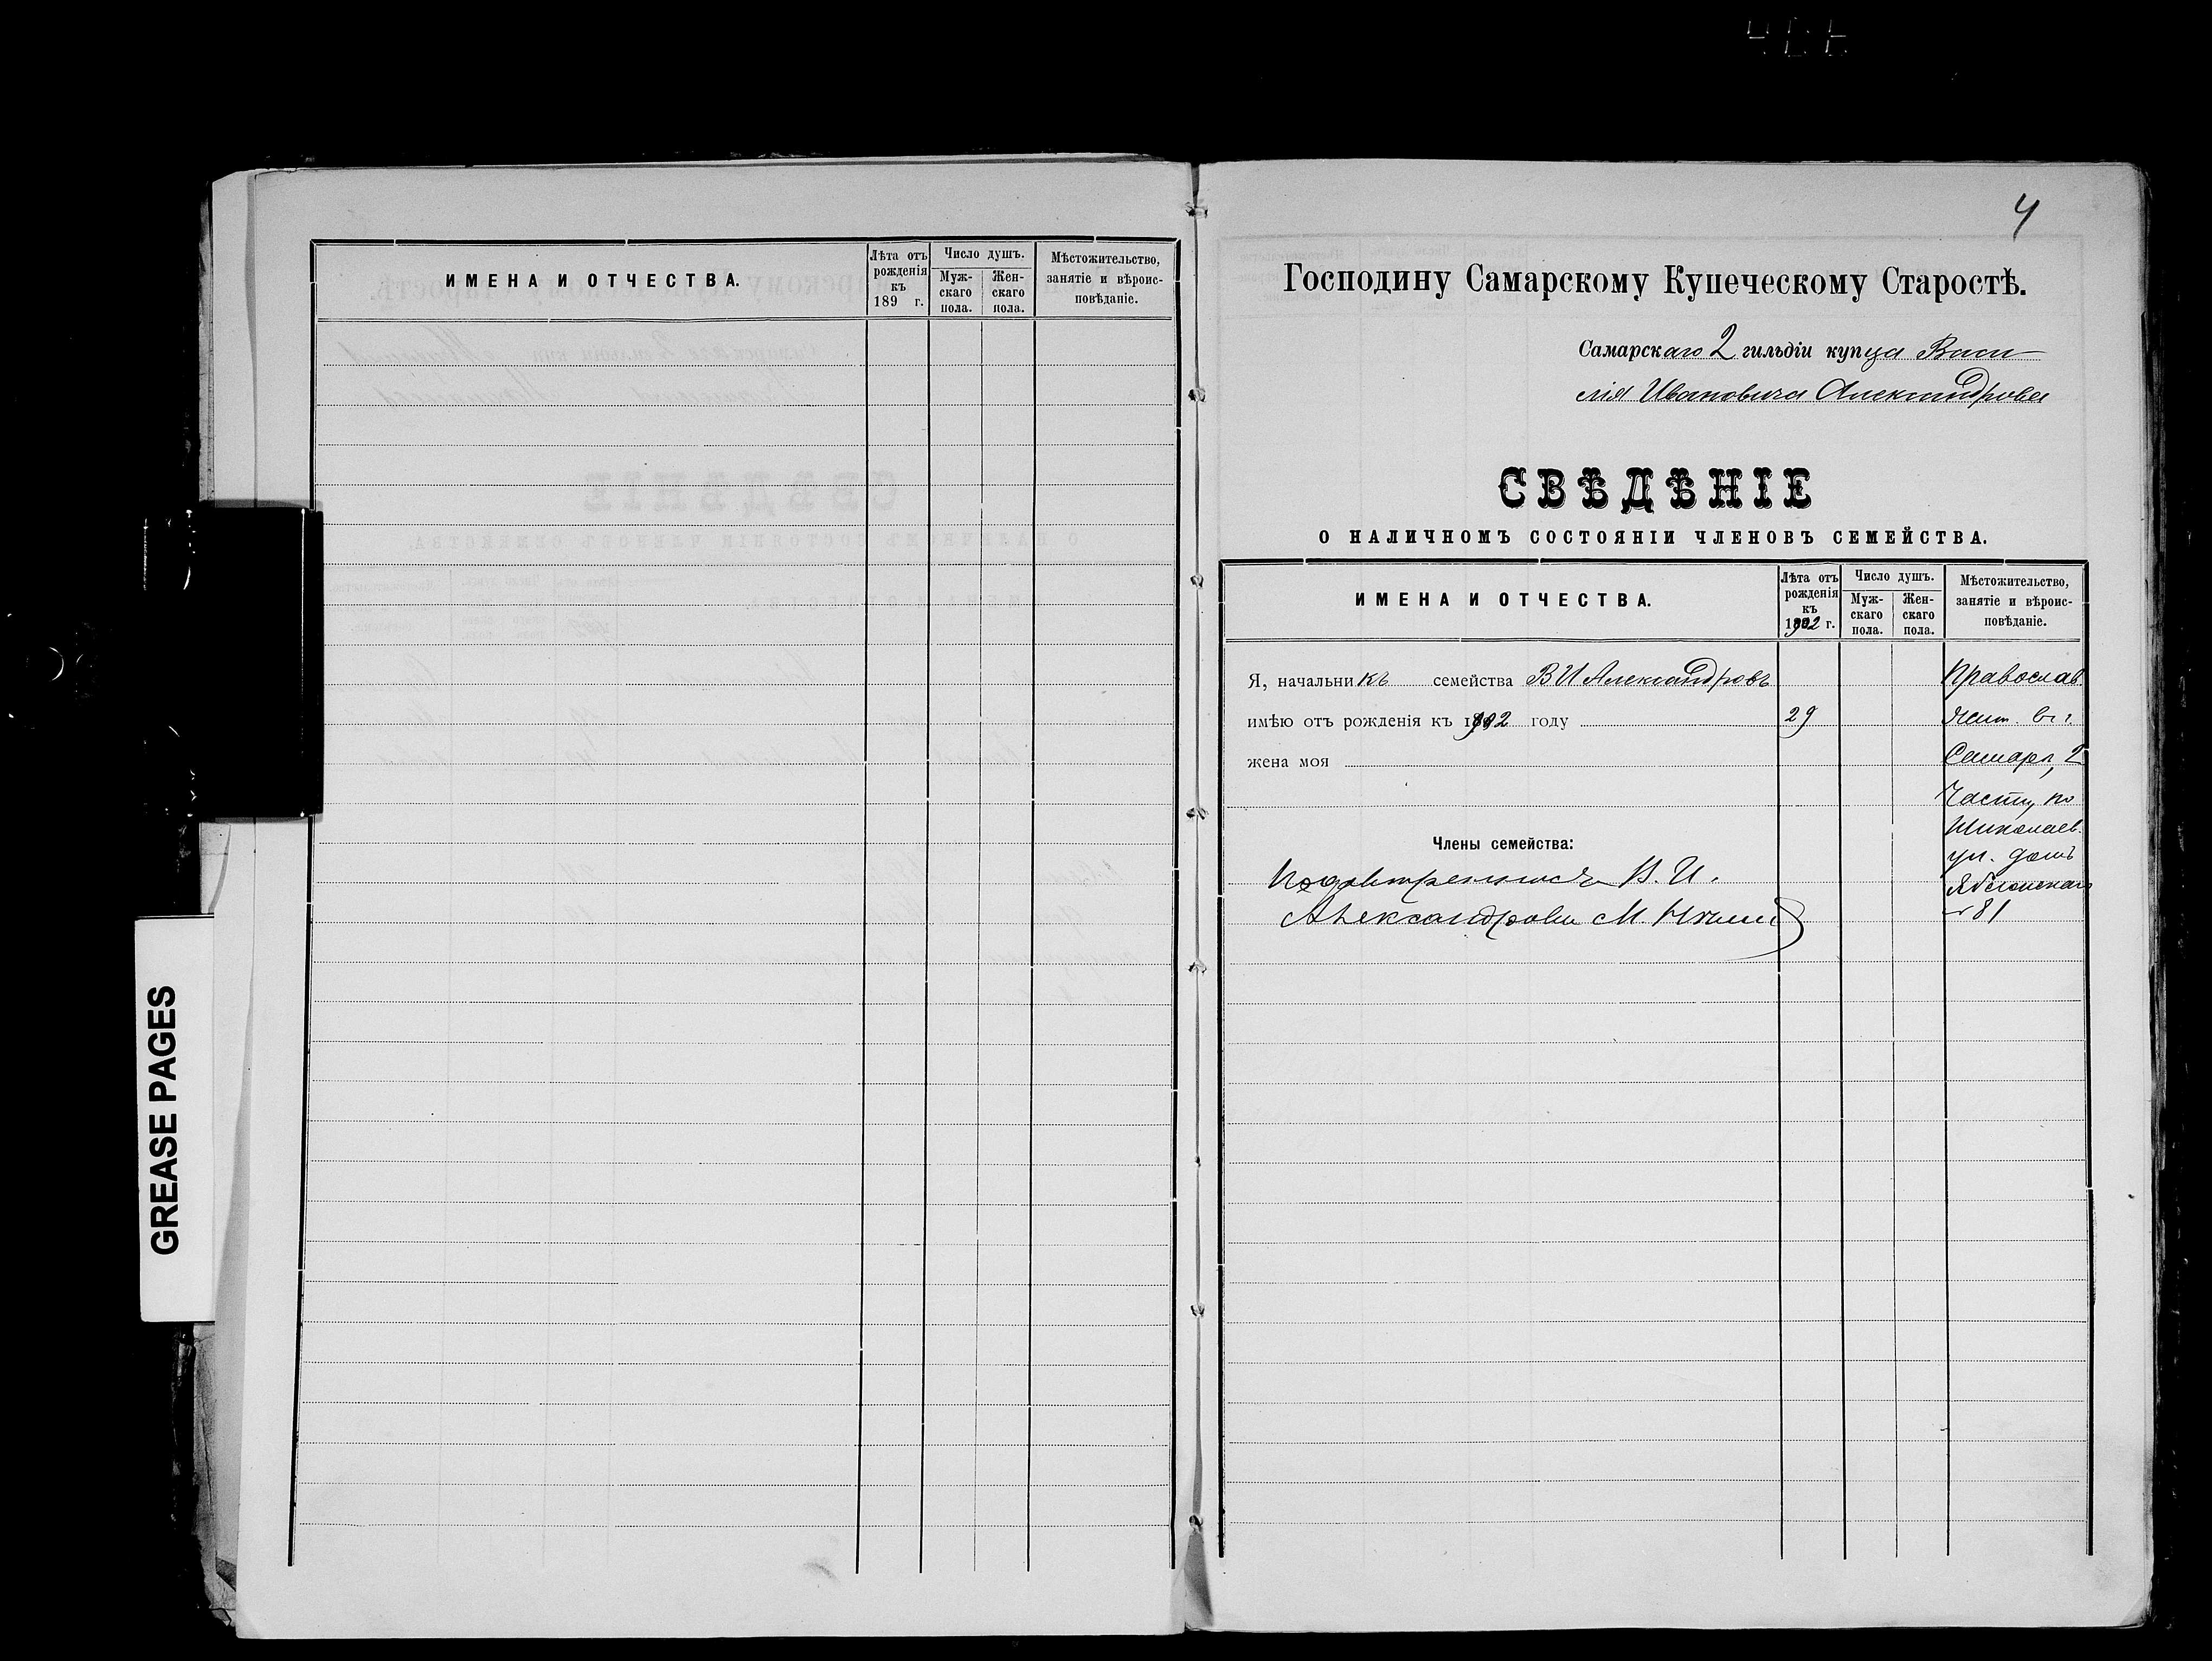 ИМЕНА И ОТЧЕСТВА.
Лѣта отъ рожденія къ 189 г.
Число душъ.
Муж-скаго пола.
Жен-скаго пола.
Мѣстожительство, занятіе и вѣроис-повѣданіе.
4
Господину Самарскому Купеческому Старостѣ.
Самарскаго 2 гильдіи купца Васи
лія Ивановича Александрова
СВѢДѢНІЕ
О НАЛИЧНОМЪ СОСТОЯНІИ ЧЛЕНОВЪ СЕМЕЙСТВА.
ИМЕНА И ОТЧЕСТВА.
Лѣта отъ рожденія къ 1902 г.
Число душъ.
Муж-скаго пола.
Жен-скаго пола.
Мѣстожительство, занятіе и вѣроис-повѣданіе.
Я, начальникъ семейства В И Александровъ
имѣю отъ рожденія къ 1902 году 29
жена моя
Члены семейства:
В. И.
Александрова М.
Православ
жит. въ г.
Самарѣ, 2
Части, по
Николаев.
ул. домъ
81
GREASE PAGES